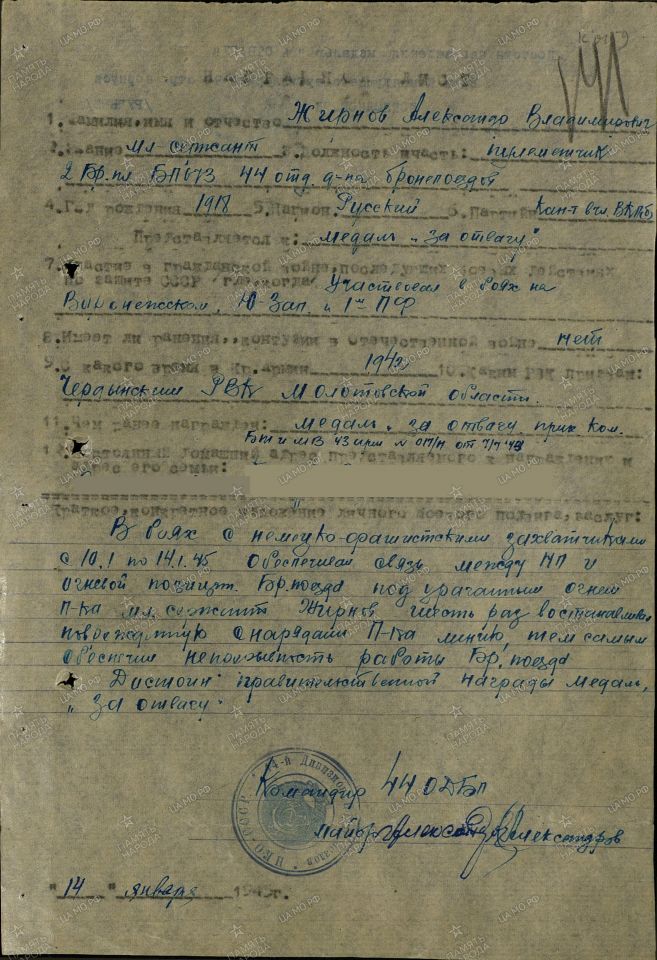 НАГРАДНОЙ ЛИСТ
1. Фамилия, имя и отчество Жирнов Александр Владимирович
2. Звание мл-сержант 3. Должность, часть: пулеметчик
2 Бр.пл БП 673 44 отд. д-на бронепоездов
4. Год рождения 1918 5. Национ. Русский 6. Партийн. Кан-т вчл. ВКПб)
Представляется к: медаль „За отвагу"
7. Участие в гражданской войне, последующих боевых действиях
по защите СССР /где, когда/ Участвовал в боях на
Воронежском, Ю-Зап. и 1ом ПФ
8. Имеет ли ранения, контузии в отечественной войне нет
9. С какого времени в Кр. армии 1942 10. Каким РВК призван:
Чердынским РВК Молотовской области.
11. Чем ранее награжден: медаль „за отвагу приказ ком.
БТ и МВ 43 от 7/7 43
12. Постоянный домашний адрес представляемого к награждению и
адрес его семьи:
Краткое, конкретное изложение личного боевого подвига, заслуг:
В боях с немецко-фашистскими захватчиками
с 10.1 по 14.1.45 обеспечивая связь между НП и
огневой позицией. Бр.поезда под ураганным огнем
П-ка мл. сержант Жирнов шесть раз востанавливал
поврежденную снарядами П-ка линию, тем самым
обеспечил непрерывность работы Бр. поезда
Достоин правительственной награды медаль,
„За отвагу".
Командир 44 ОДБП
майор Александров
"14" января 1945г.